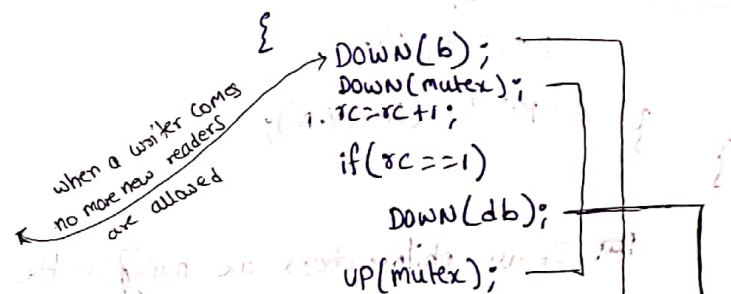 {
DOWN(b);
DOWN(mutex);
rc=rc+1;
if(rc==1)
DOWN(db);
UP(mutex);
when a writer comes
no more new readers
are allowed